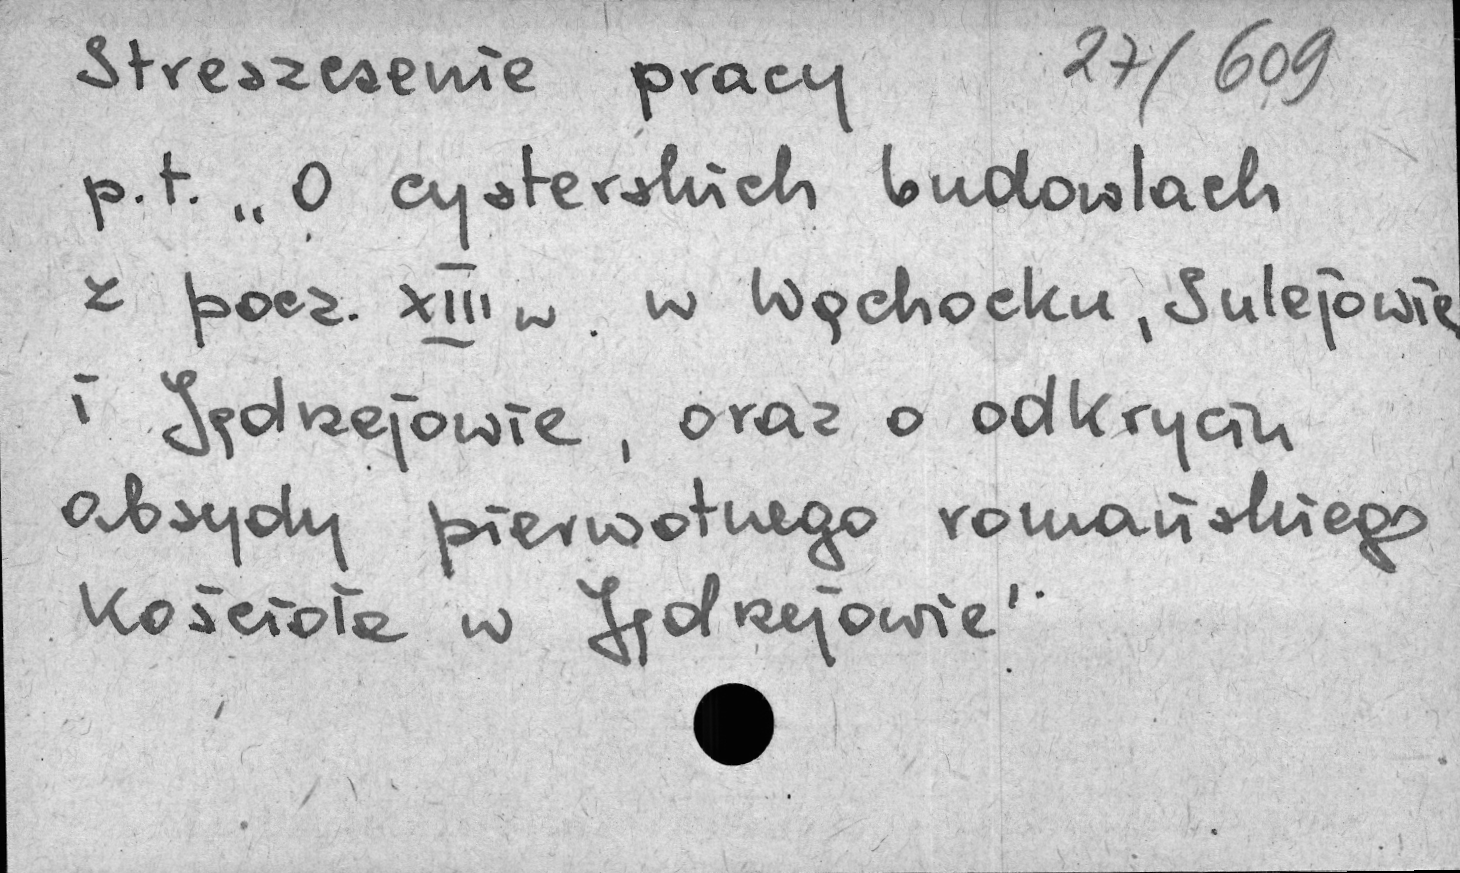 Streszczenie pracy 27/609
p.t. „O cysterskich budowlach
z pocz. XIII w. w Wąchocku, Sulejowie
i Jędrzejowie, oraz o odkryciu
absydy pierwotnego romańskiego
Kościoła w Jędrzejowie".